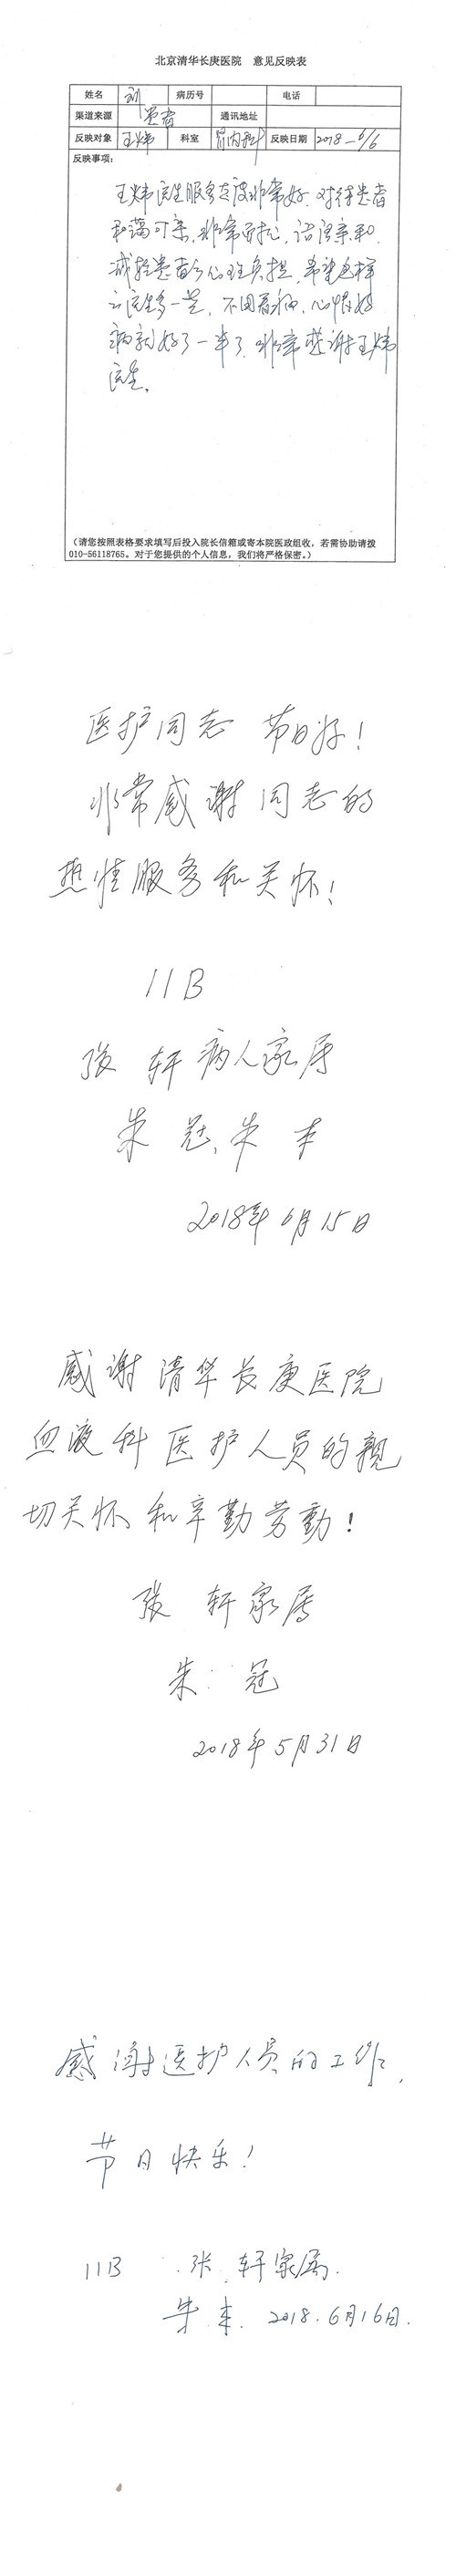 北京清华长庚医院 意见反映表
姓名 刘 病历号 电话
渠道来源 患者 通讯地址
反映对象 王炜 科室 肾内科 反映日期 2018-6/6
反映事项：
王炜医生服务态度非常好，对待患者
和蔼可亲，非常耐心，话语亲和，
减轻患者心理负担，希望这样
的医生多一些，不因看病，心情好
病就好了一半了，非常感谢王炜
医生。
（请您按照表格要求填写后投入院长信箱或寄本院医政组收，若需协助请拨
010-56118765。对于您提供的个人信息，我们将严格保密。）
医护同志 节日好！
非常感谢同志的
热情服务和关怀！
11B
张 轩病人家属
朱 冠、朱 丰
2018年6月15日
感谢清华长庚医院
血液科医护人员的亲
切关怀和辛勤劳动！
张 轩家属
朱 冠
2018年5月31日
感谢医护人员的工作，
节日快乐！
11B 张 轩家属.
朱 丰. 2018.6月16日.